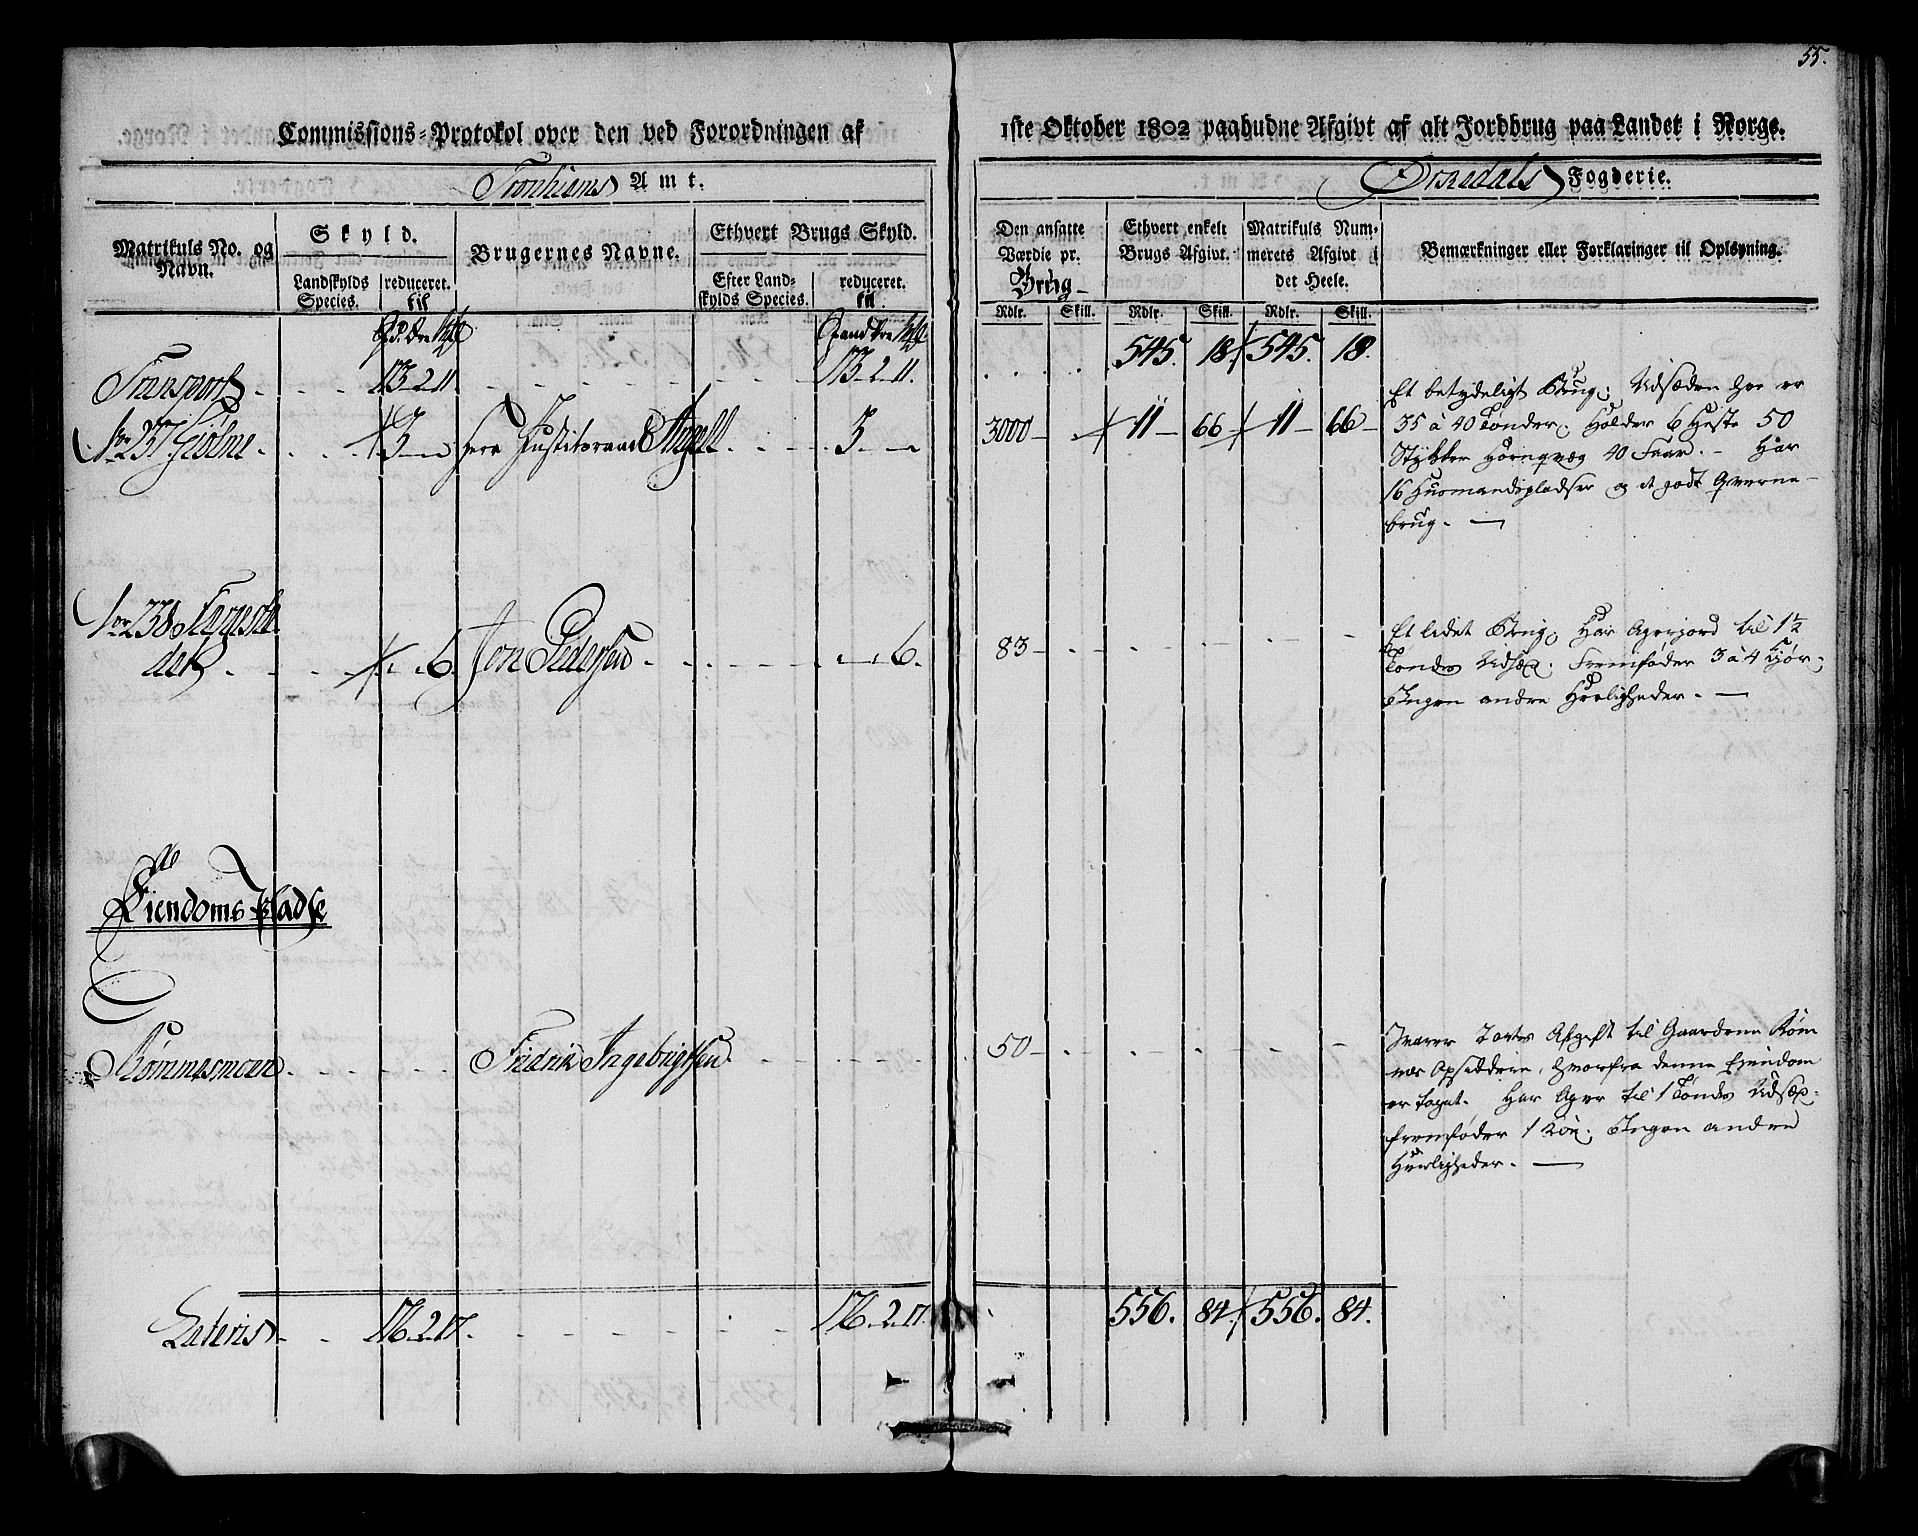 55.
Commissions-Protokol over den ved Forordningen af 1ste Oktober 1802 paabudne Afgivt af alt Jordbrug paa Landet i Norge.
Tronhiems Amt. Orkedals Fogderie.
Matrikuls No. og Navn.
Skyld.
Landskylds Species.
reduceret. til
Brugernes Navne.
Ethvert Brugs Skyld.
Efter Landskylds Species.
reduceret. til
Den ansatte Værdie pr. Brug
Ethvert enkelt Brugs Afgivt.
Matrikuls Nummerets Afgivt i det Heele.
Bemærkninger eller Forklaringer til Oplysning.
Rdlr. Skill. Rdlr. Skill. Rdlr. Skill.
Transport 173 2 11 173 2 11. 545. 18. 545. 18.
No 237 Giølme 3 Herr Justitsraad Angell 3 3000 11 66 11 66
Et betydeligt Brug; Udsæden her er
35 à 40 Tønder; Holder 6 Heste 50
Stykker Hornqvæg 40 Faar. Har
16 Huusmandspladser og et godt Qværne-
brug.
No 238
6 Jon Pedersen 6. 83
Et lidet Brug; Har Agerjord til 1½
Tøndes Udsæd; Fremføder 3 à 4 Kiør;
Ingen andre Herligheder.
Eiendoms Pladse
Rømmesmoen Fridrik Ingebrigtsen 50
Svarer Aarlig Afgift til Gaarden Røm
hvorfra denne Eiendom
er taget. Har Ager til 1 Tøndes Udsæd.
fremføder 1 Koe; Ingen andre
Herligheder.
Lateris 176 2 17. 176. 2. 17. 556. 84. 556. 84.